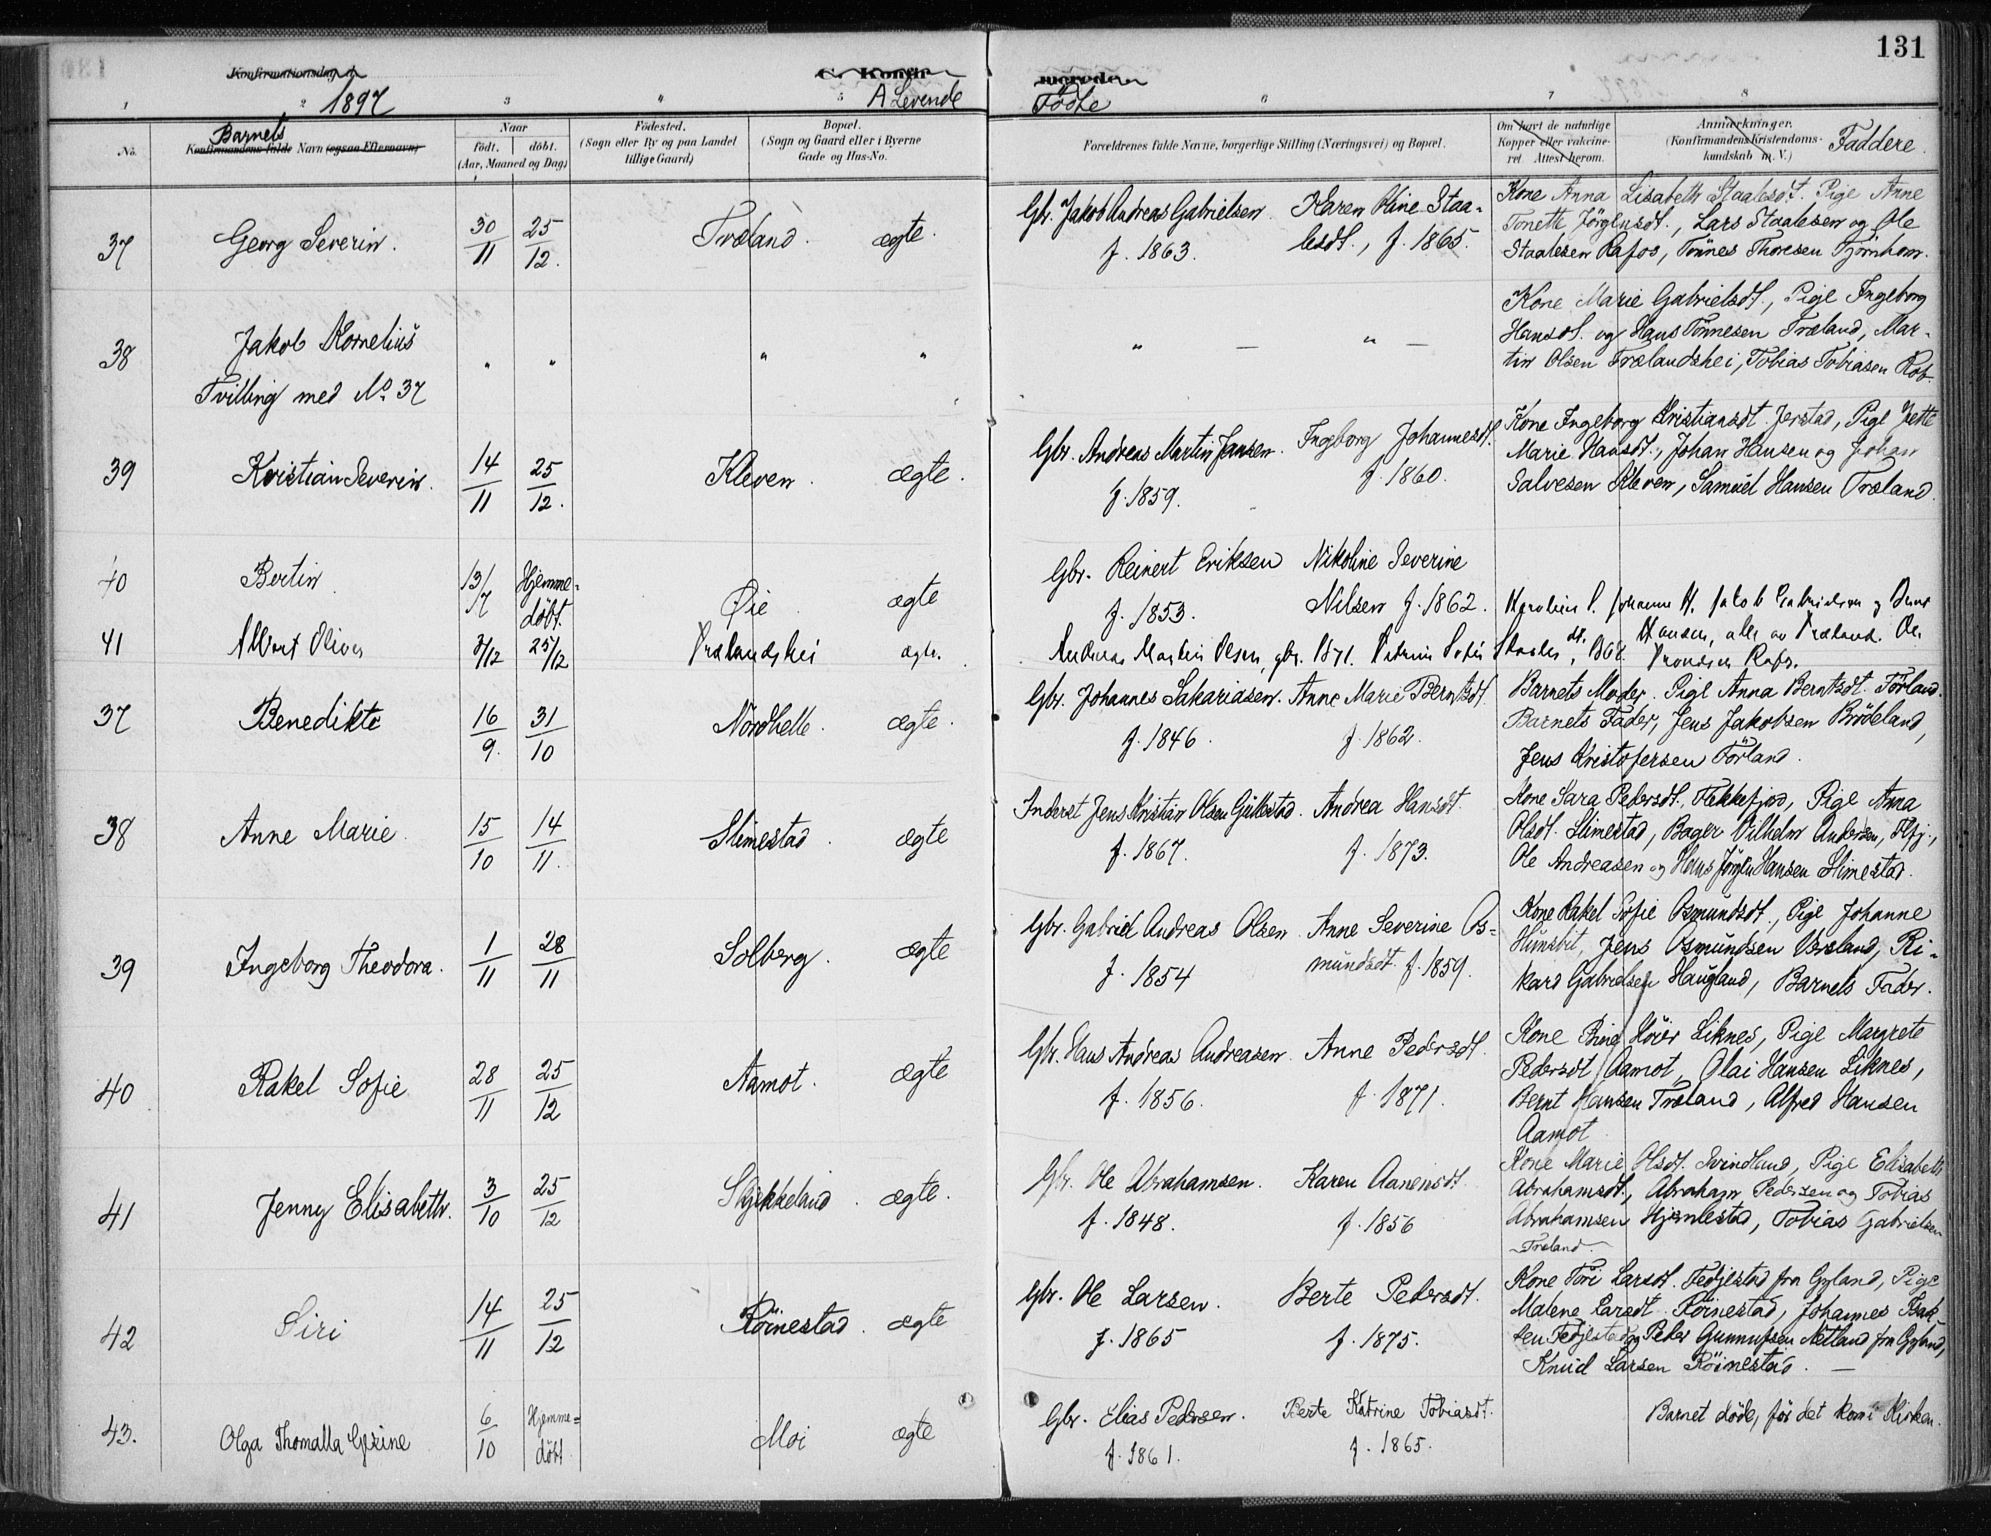 131
Konfirmationsdag C. Konfirmerede
1897 A Levende Födte
1 2 3 4 5 6 7 8
No. Barnets Konfirmandens fulde Navn (ogsaa Efternavn) Naar födt. döbt. (Aar, Maaned og Dag) Födested. (Sogn eller By og paa Landet tillige Gaard) Bopæl. (Sogn og Gaard eller i Byerne Gade og Hus-No. Forældrenes fulde Navne, borgerlige Stilling (Næringsvei) og Bopæl. Om havt de naturlige Kopper eller vaccineret. Attest herom. Anmærkninger. (Konfirmandens Kristendomskundskab m. V.) Faddere.
37 Georg Severin. 30/11 25/12. Træland. ægte. Gbr. Jakob Andreas Gabrielsen f. 1863. Karen Oline Staalesdt., f. 1865.
Kone Anna Lisabeth Staalesdt. Pige Anne
Tonette Jörgensdt., Lars Staalesen og Ole
Staalesen Rafos, Tönnes Thoresen Tjörnhom.
38 Jakob Kornelius " " " " " — " —
Tvilling med No. 37
Kone Marie Gabrielsdt., Pige Ingeborg
Hansdt. og Hans Tönnesen Træland, Mar-
tin Olsen Trælandshei, Tobias Tobiasen Rob.
39 Kristian Severin. 14/11 25/12. Kleven. ægte. Gbr. Andreas Martin Jansen. f. 1859. Ingeborg Johannesdt. f. 1860.
Kone Ingeborg Kristiansdt. Jerstad, Pige Jette
Marie Hansdt., Johan Hansen og Johan
Salvesen Kleven, Samuel Hansen Træland.
40 Bertin 13/7 Hjemmedöbt. Øie ægte Gbr. Reinert Eriksen f. 1853. Nikoline Severine Nilsen f. 1862.
41 Albert Oliver 3/12 25/12 Trælandshei ægte. Andreas Martin Olsen, gbr. 1871. Staalesdt., 1868.
Johanne H. Jakob Gabrielsen og
Hansen, alle av Træland. Ole
Rafos.
37 Benedikte 16/9. 31/10 Nordhelle. ægte. Gbr. Johannes Sakariasen. f. 1846. Anne Marie Berntsdt. f. 1862.
Barnets Moder. Pige Anna Berntsdt. Förland.
Barnets Fader, Jens Jakobsen Brödeland,
Jens Kristofersen Förland.
38 Anne Marie. 15/10 14/11. Slimestad. ægte Inderst Jens Kristian Olsen Gullestad. f. 1867. Andrea Hansdt. f. 1873.
Kone Sara Pedersdt., Flekkefjord, Pige Anna
Olsdt. Slimestad, Bager Vilhelm Andersen, Flfj.,
Ole Andreasen og Hans Jörgen Hansen Slimestad.
39 Ingeborg Theodora. 1/11 28/11 Solberg. ægte Gbr. Gabriel Andreas Olsen f. 1854 Anne Severine Osmundsdt. f. 1859.
Kone Rakel Sofie Osmundsdt., Pige Johanne
Hunsbet, Jens Osmundsen Versland, Ri-
kard Gabrielsen Haugland, Barnets Fader.
40 Rakel Sofie 28/11 25/12 Aamot. ægte Gbr. Hans Andreas Andreasen. f. 1856. Anne Pedersdt. f. 1871.
Kone Höier Liknes, Pige Margrete
Pedersdt Aamot, Olai Hansen Liknes,
Bernt Hansen Træland, Alfred Hansen
Aamot
41 Jenny Elisabeth. 3/10 25/12 Skjekkeland. ægte. Gbr. Ole Abrahamsen. f. 1848. Karen Aanensdt. f. 1856
Kone Marie Olsdt. Svindland, Pige Elisabeth
Abrahamsdt., Abraham Pedersen og Tobias
Abrahamsen Hjemlestad, Tobias Gabrielsen
Træland.
42 Siri 14/11 25/12 Röinestad. ægte Gbr. Ole Larsen. f. 1865 Berte Pedersdt. f. 1875.
Kone Tori Larsdt. Fedjestad fra Gyland, Pige
Malene Larsdt Röinestad, Johannes Isak-
sen Fedjestad og Peder Gunnufsen Netland fra Gyland,
Knud Larsen Röinestad. —
43. Olga Thomalla Gezine 6/10 Hjemmedöbt Moi ægte Gbr. Elias Pedersen. f. 1861. Berte Katrine Tobiasdt. f. 1865.
Barnet döde, för det kom i Kirken.